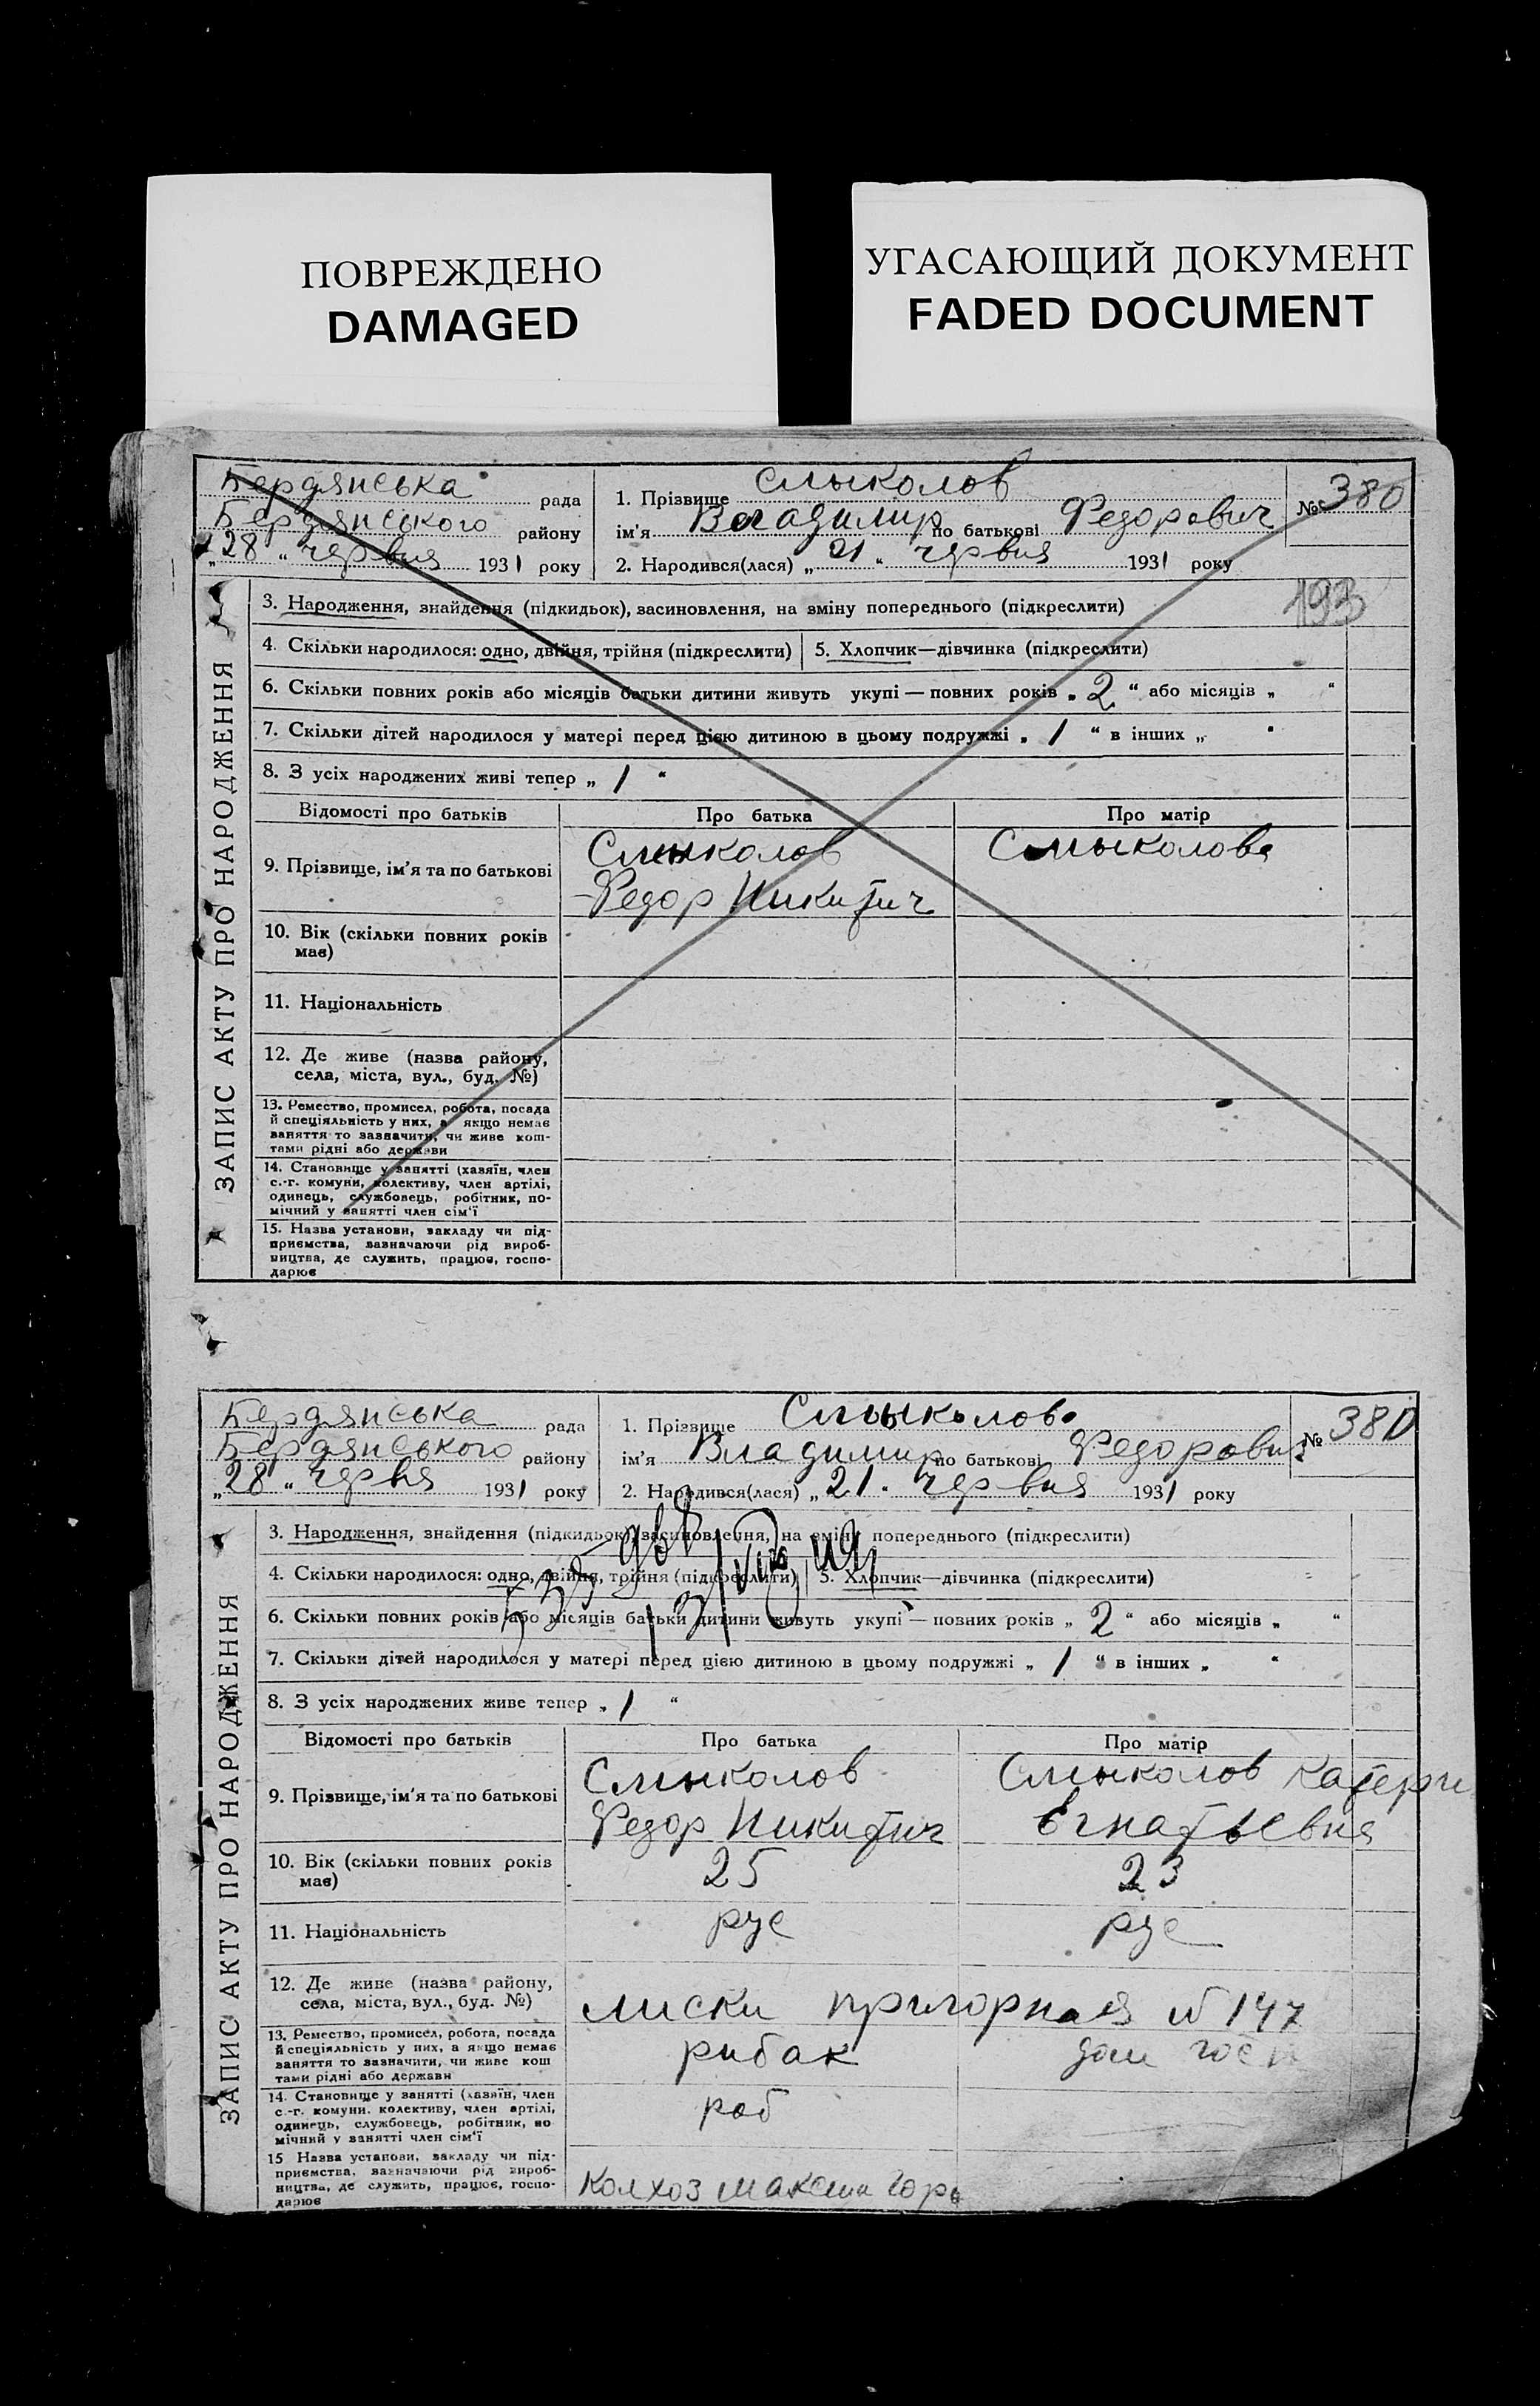 ПОВРЕЖДЕНО
DAMAGED
УГАСАЮЩИЙ ДОКУМЕНТ
FADED DOCUMENT
Бердянська рада
Бердянського району
„28“ червня 1931 року
1. Прізвище Смыколов
ім'я Владимир по батькові Федорович
2. Народився(лася) „21“ червня 1931 року
№ 380
193
ЗАПИС АКТУ ПРО НАРОДЖЕННЯ
3. Народження, знайдення (підкидьок), засиновлення, на зміну попереднього (підкреслити)
4. Скільки народилося: одно, двійня, трійня (підкреслити)
5. Хлопчик—дівчинка (підкреслити)
6. Скільки повних років або місяців батьки дитини живуть укупі — повних років „2“ або місяців „ “
7. Скільки дітей народилося у матері перед цією дитиною в цьому подружжі „1“ в інших „ “
8. З усіх народжених живі тепер „1“
Відомості про батьків
Про батька
Про матір
9. Прізвище, ім'я та по батькові
Смыколов
Федор Никитич
Смыколова
10. Вік (скільки повних років
має)
11. Національність
12. Де живе (назва району,
села, міста, вул., буд. №)
13. Ремество, промисел, робота, посада
й спеціяльність у них, а якщо немає
заняття то зазначити, чи живе кош-
тами рідні або держави
14. Становище у занятті (хазяїн, член
с.-г. комуни, колективу, член артілі,
одинець, службовець, робітник, по-
мічний у занятті член сім'ї
15. Назва установи, закладу чи під-
приємства, зазначаючи рід вироб-
ництва, де служить, працює, госпо-
дарює
Бердянська рада
Бердянського району
„28“ червня 1931 року
1. Прізвище Смыколов
ім'я Владимир по батькові Федорович
2. Народився(лася) „21. червня 1931 року
№ 380
ЗАПИС АКТУ ПРО НАРОДЖЕННЯ
3. Народження, знайдення (підкидьок), засиновлення, на зміну попереднього (підкреслити)
4. Скільки народилося: одно, двійня, трійня (підкреслити)
5. Хлопчик—дівчинка (підкреслити)
6. Скільки повних років або місяців батьки дитини живуть укупі — повних років „2“ або місяців „ “
7. Скільки дітей народилося у матері перед цією дитиною в цьому подружжі „1“ в інших „ “
8. З усіх народжених живе тепер „1“
Відомості про батьків
Про батька
Про матір
9. Прізвище, ім'я та по батькові
Смыколов
Федор Никитич
Смыколов Катери
Егнатьевня
10. Вік (скільки повних років
має)
25
23
11. Національність
рус
рус
12. Де живе (назва району,
села, міста, вул., буд. №)
лиски пригорная № 147
13. Ремество, промисел, робота, посада
й спеціяльність у них, а якщо немає
заняття то зазначити, чи живе кош
тами рідні або держави
рибак
дом гос
14. Становище у занятті (хазяїн, член
с.-г. комуни, колективу, член артілі,
одинець, службовець, робітник, по
мічний у занятті член сім'ї
роб
15 Назва установи, закладу чи під-
приємства, зазначаючи рід вироб-
ництва, де служить, працює, госпо-
дарює
Колхоз Максим Горь